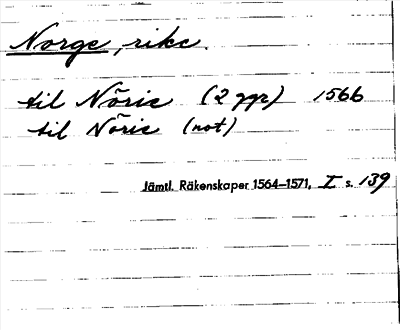 Norge, rike.
til Nõrie (2 ggr) 1566
till Nõrie (not)
Jämtl. Räkenskaper 1564–1571, I s. 139